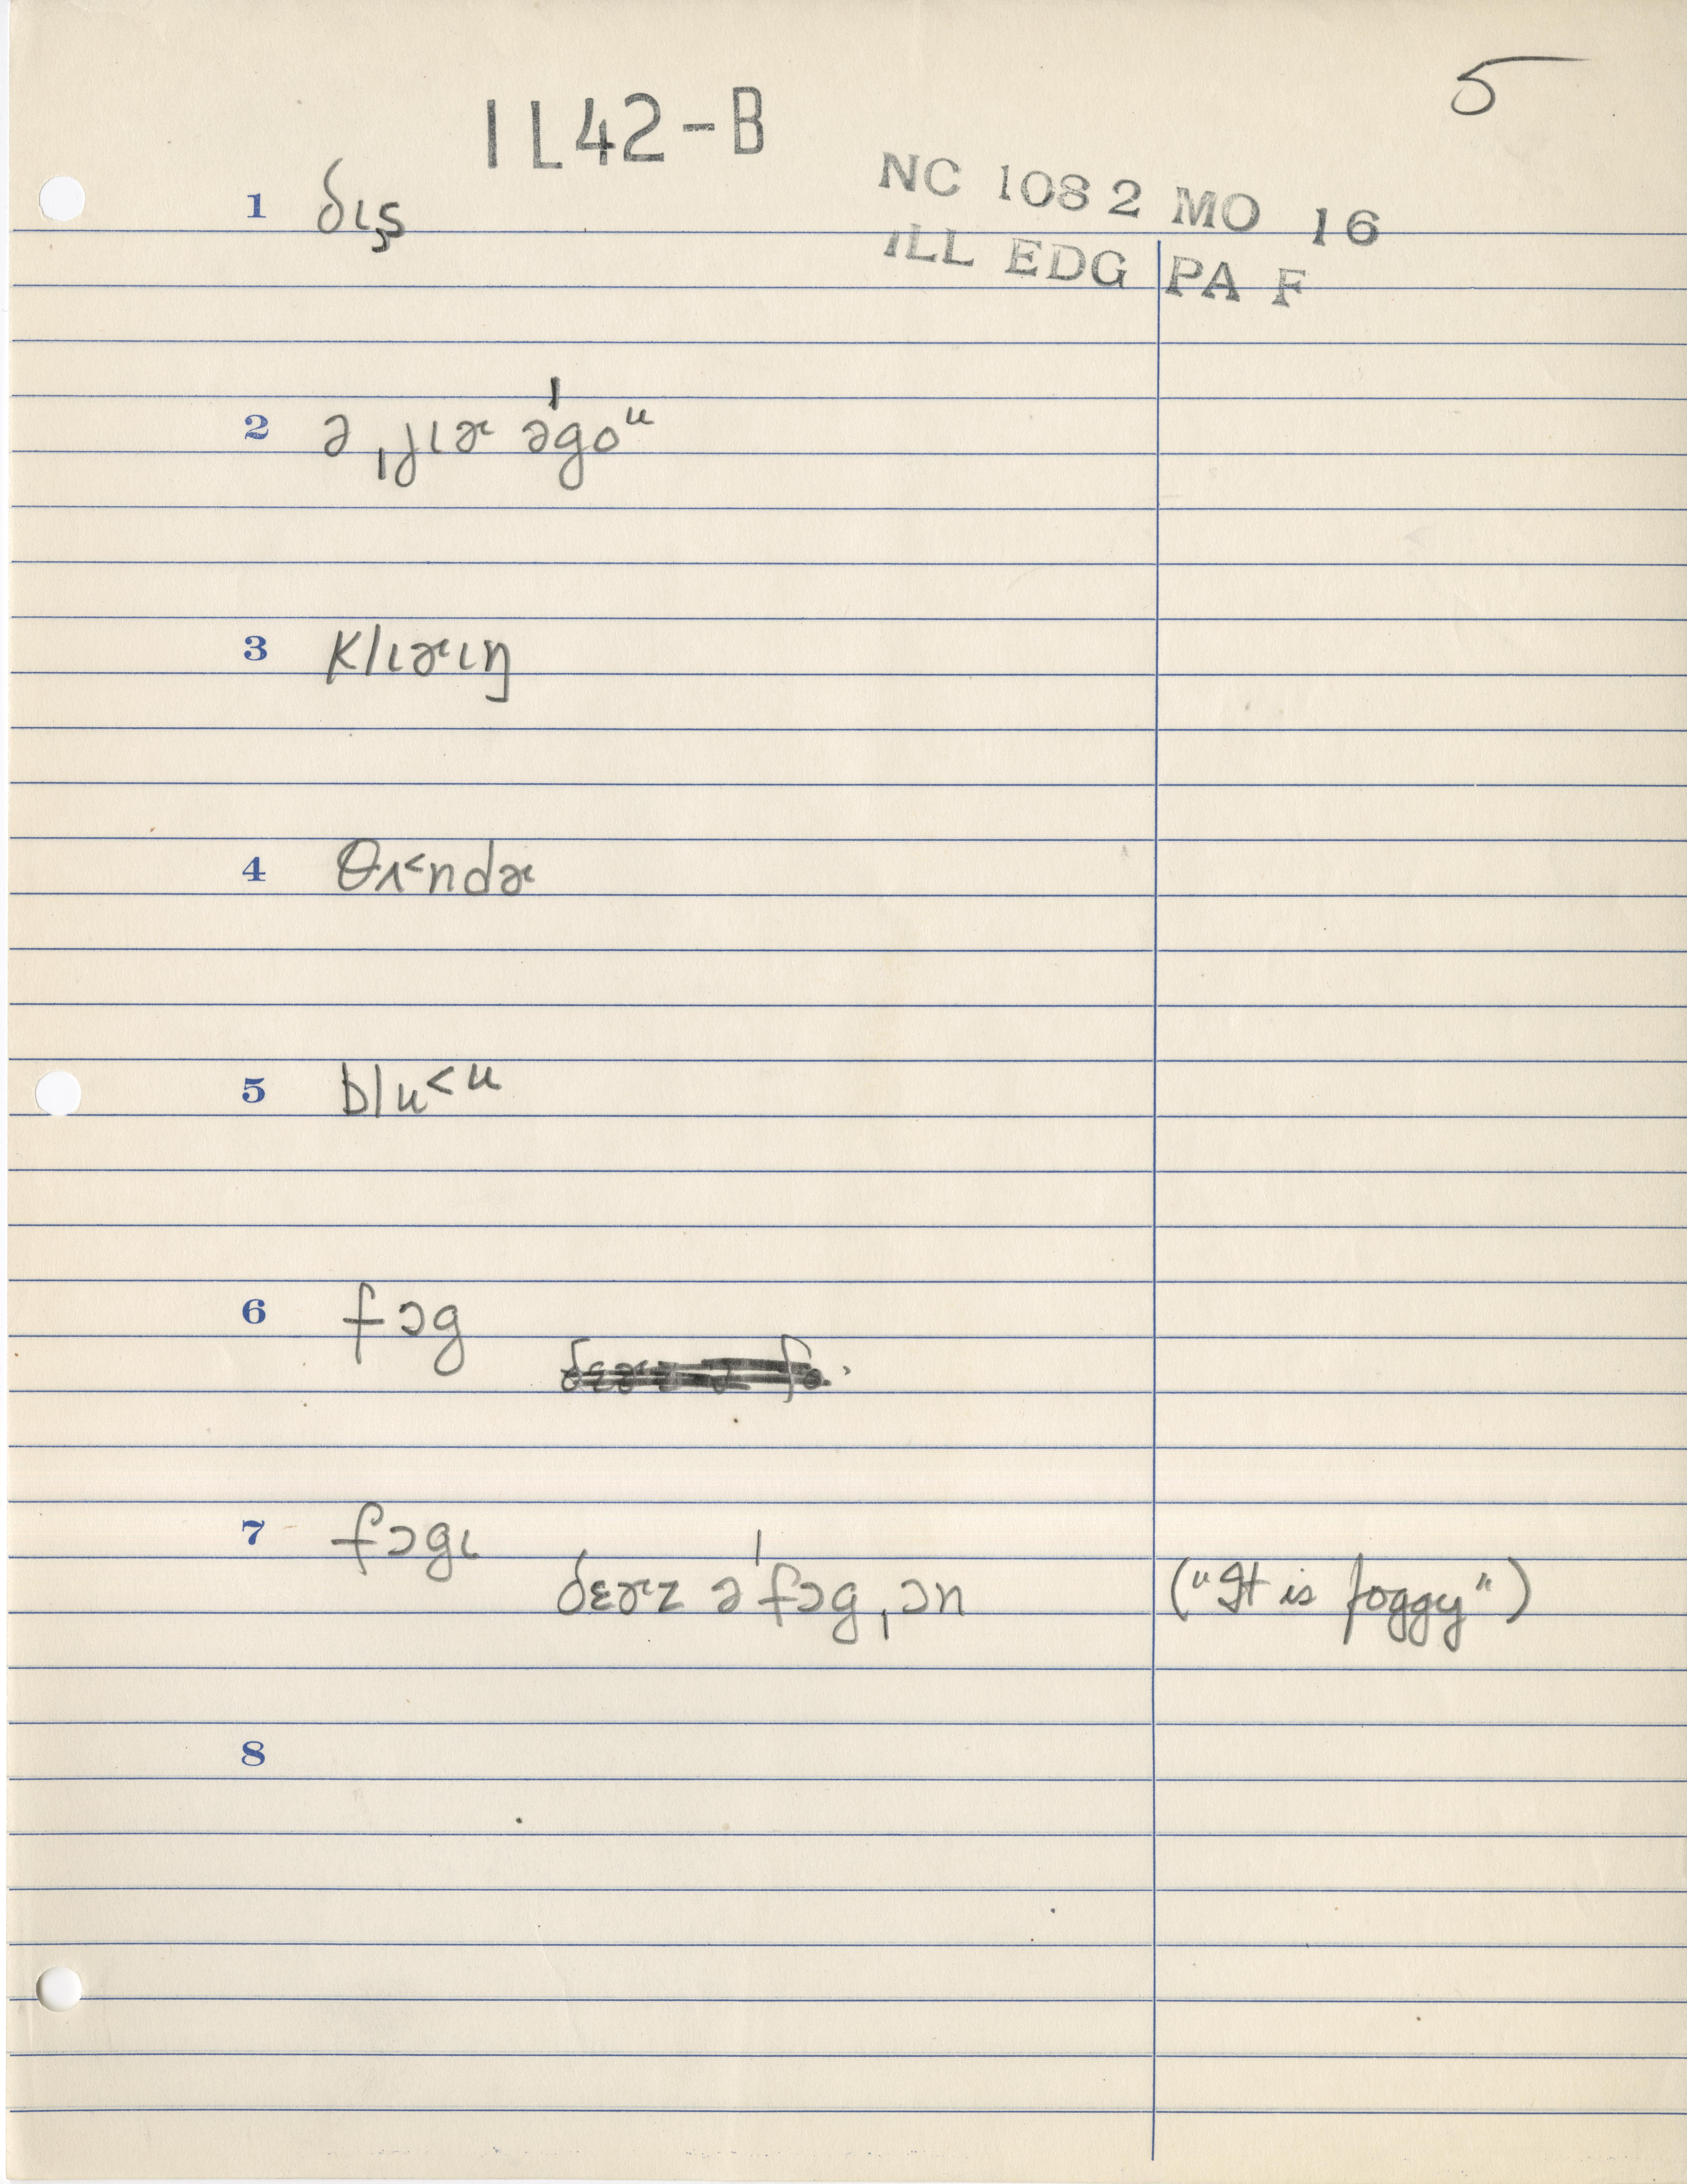 5
IL42-B
NC 1082 MO 16
ILL EDG PA F
1 δɩs̬
2 ə ˌjɩɚ əˈgoᵘ
3 klɩɚɩŋ
4 θʌ˂ndɚ
5 blu˂ᵘ
6 fɔg
7 fɔgɩ
δɛɚz ə ˈfɔgˌɔn ("It is foggy")
8